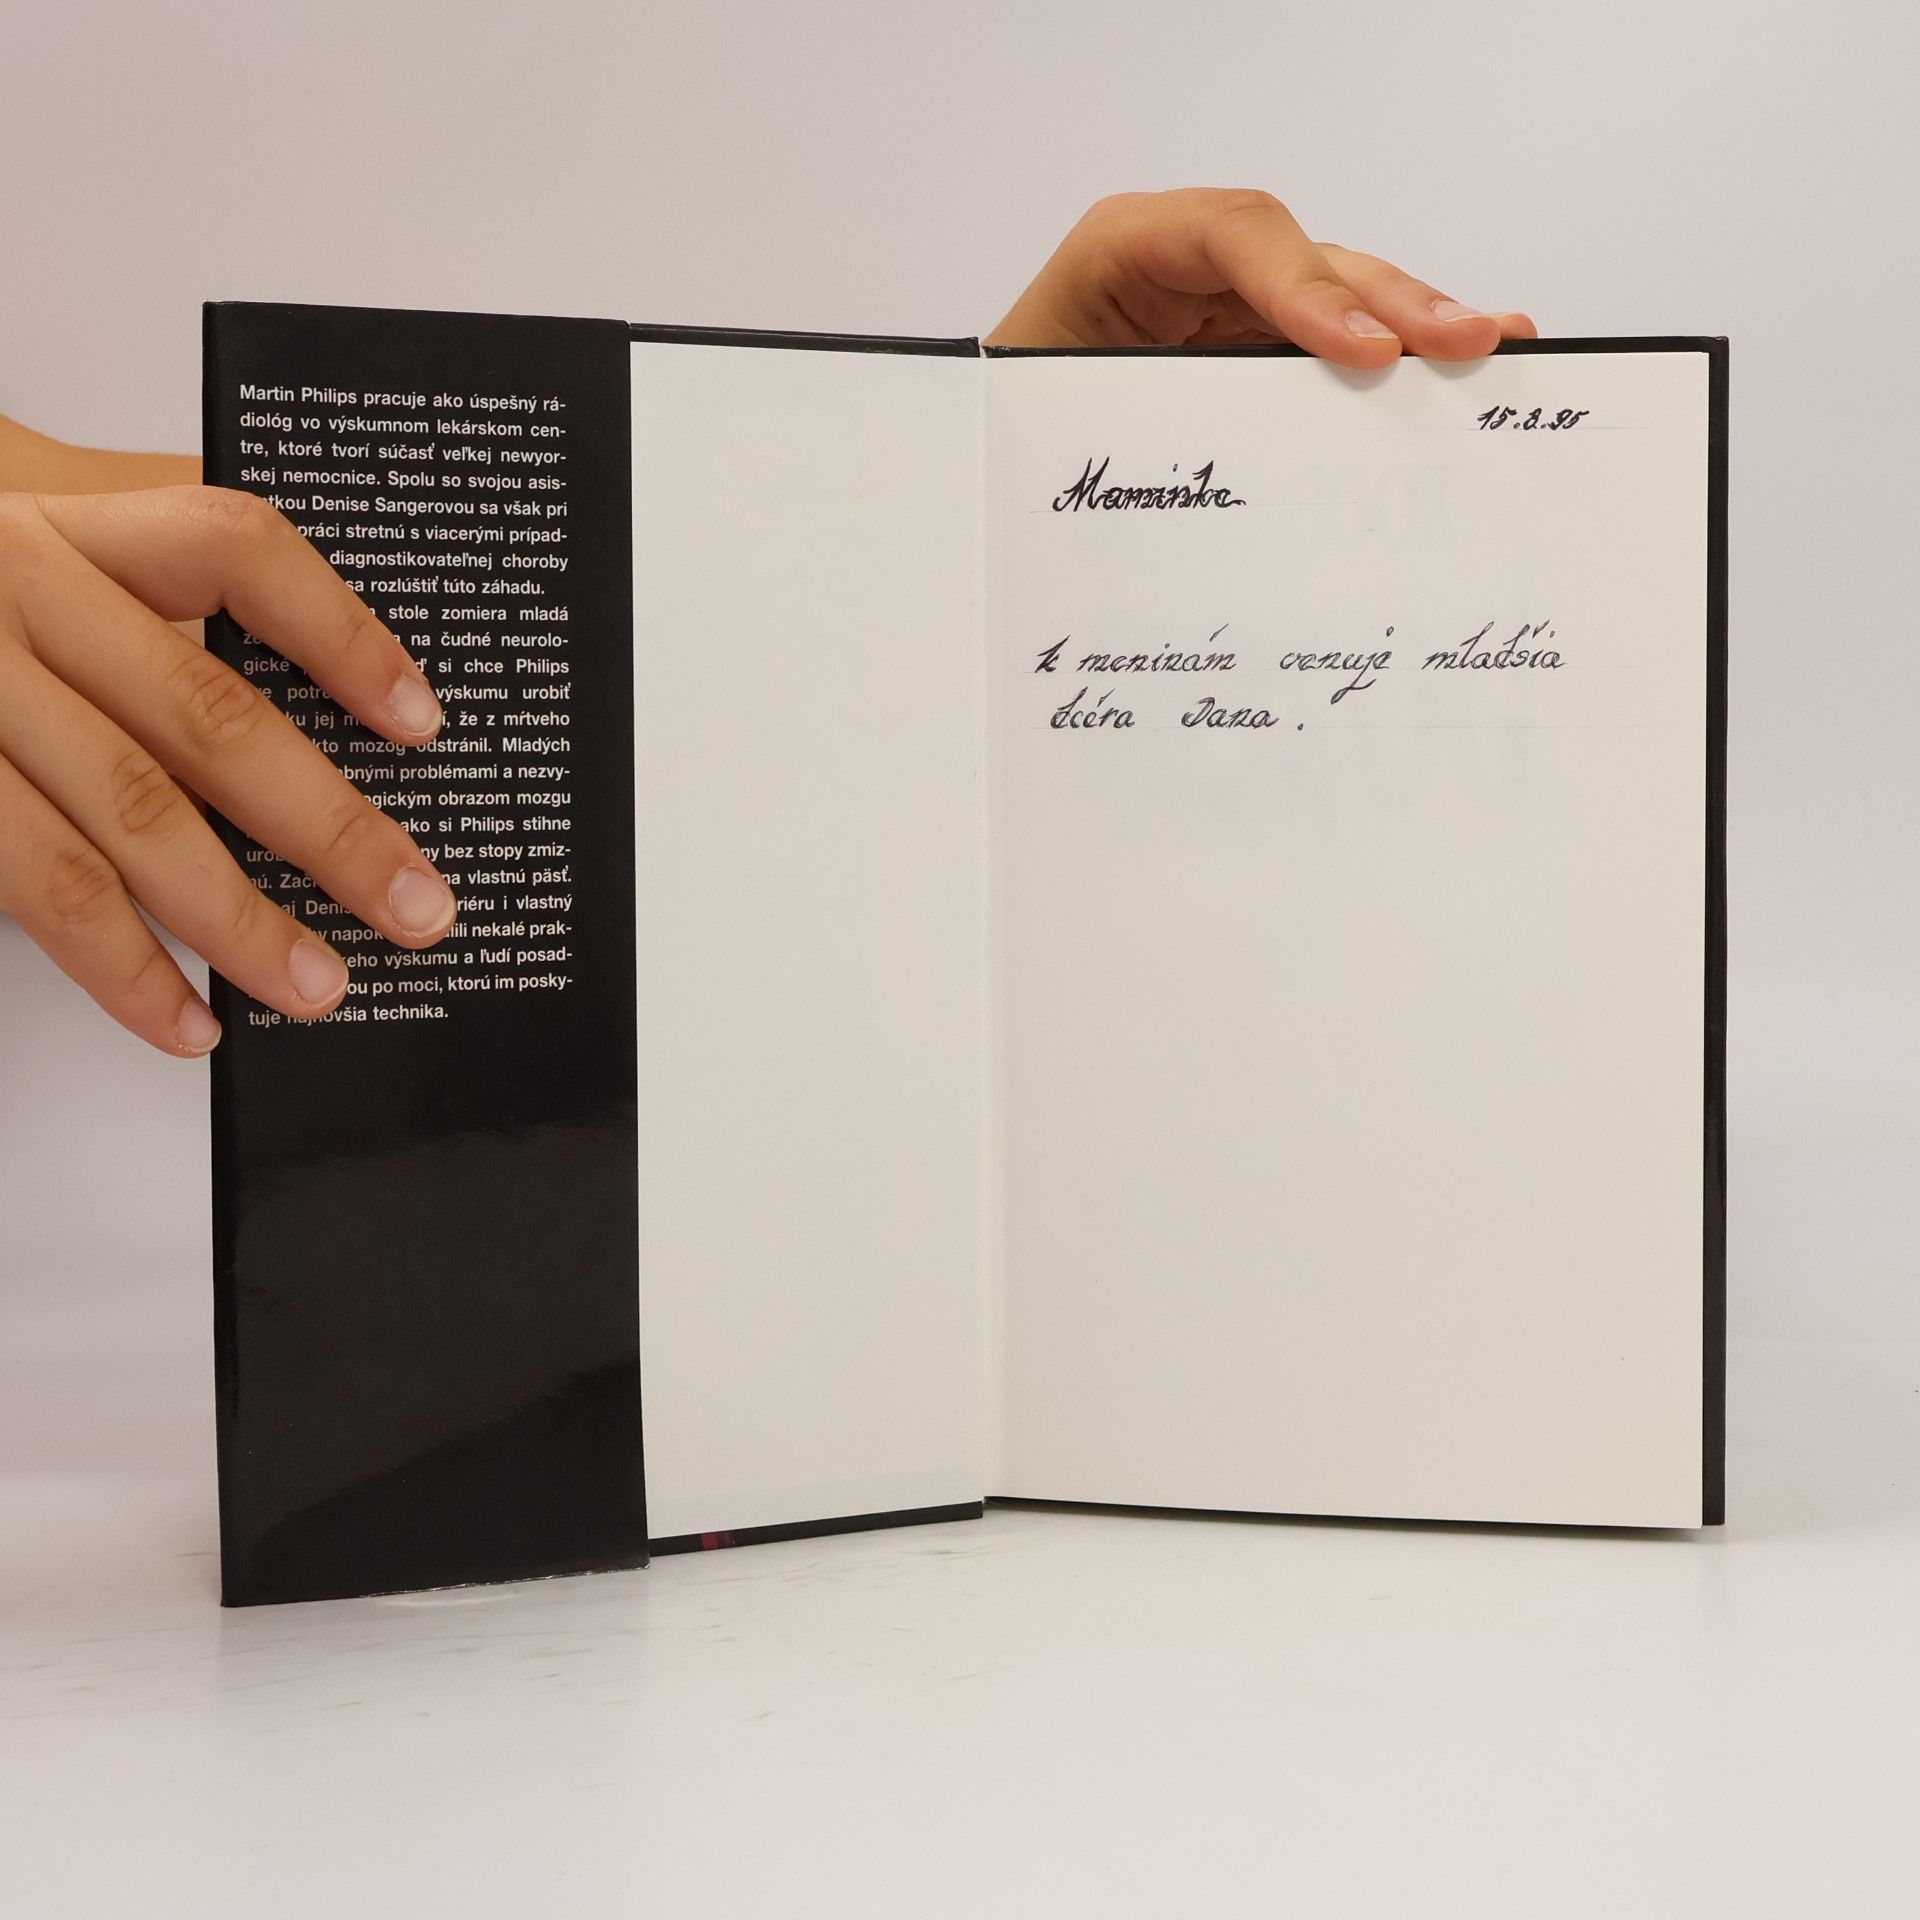 Martin Philips pracuje ako úspešný rá-
diológ vo výskumnom lekárskom cen-
tre, ktoré tvorí súčasť veľkej newyor-
skej nemocnice. Spolu so svojou asis-
tkou Denise Sangerovou sa však pri
práci stretnú s viacerými prípad-
diagnostikovateľnej choroby
sa rozlúštiť túto záhadu.
stole zomiera mladá
na čudné neurolo-
gické si chce Philips
výskumu urobiť
ku jej že z mŕtveho
kto mozog odstránil. Mladých
obnými problémami a nezvy-
ogickým obrazom mozgu
ako si Philips stihne
ny bez stopy zmiz-
nú. na vlastnú päsť.
aj riéru i vlastný
by nekalé prak-
keho výskumu a ľudí posad-
ou po moci, ktorú im posky-
tuje najnovšia technika.
15.8.95
Maminke
k meninám venuje mladšia
dcéra Dana.